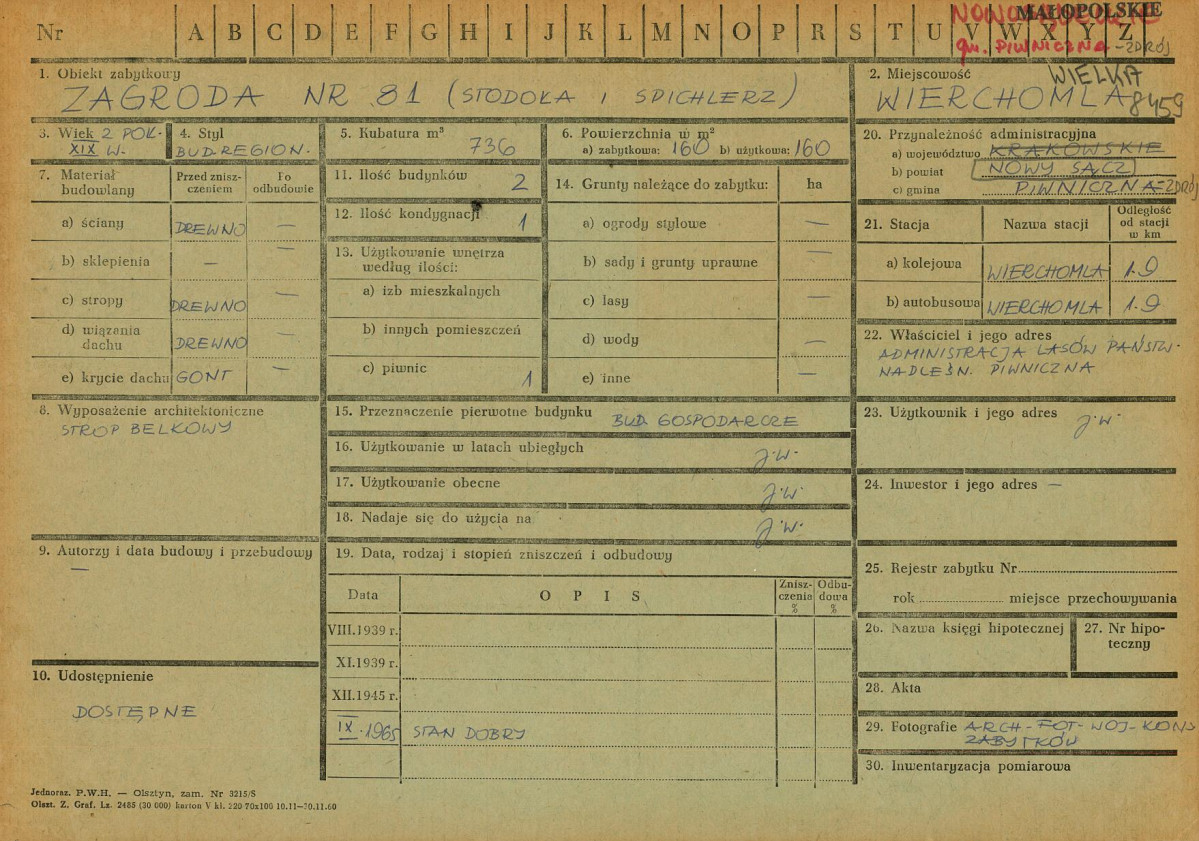 Nr A B C D E F G H I J K L M N O P R S T U V W X Y Z
MAŁOPOLSKIE
gm. PIWNICZNA-ZDRÓJ
1. Obiekt zabytkowy
ZAGRODA NR 81 (STODOŁA I SPICHLERZ)
2. Miejscowość
WIERCHOMLA WIELKA
8459
3. Wiek 2 POŁ. XIX W.
4. Styl
BUD. REGION.
5. Kubatura m³
736
6. Powierzchnia w m²
a) zabytkowa: 160 b) użytkowa: 160
7. Materiał budowlany
Przed zniszczeniem
Po odbudowie
a) ściany DREWNO —
b) sklepienia — —
c) stropy DREWNO —
d) wiązania dachu DREWNO —
e) krycie dachu GONT —
8. Wyposażenie architektoniczne
STROP BELKOWY
9. Autorzy i data budowy i przebudowy
—
10. Udostępnienie
DOSTĘPNE
11. Ilość budynków 2
12. Ilość kondygnacji 1
13. Użytkowanie wnętrza
według ilości:
a) izb mieszkalnych
b) innych pomieszczeń
c) piwnic 1
14. Grunty należące do zabytku: ha
a) ogrody stylowe —
b) sady i grunty uprawne —
c) lasy —
d) wody —
e) inne —
15. Przeznaczenie pierwotne budynku BUD. GOSPODARCZE
16. Użytkowanie w latach ubiegłych J.W.
17. Użytkowanie obecne J.W.
18. Nadaje się do użycia na J.W.
19. Data, rodzaj i stopień zniszczeń i odbudowy
Data OPIS Zniszczenia % Odbudowa %
VIII.1939 r.
XI.1939 r.
XII.1945 r.
IX.1965 STAN DOBRY
20. Przynależność administracyjna
a) województwo KRAKOWSKIE
b) powiat NOWY SĄCZ
c) gmina PIWNICZNA-ZDRÓJ
21. Stacja Nazwa stacji Odległość od stacji w km
a) kolejowa WIERCHOMLA 1.9
b) autobusowa WIERCHOMLA 1.9
22. Właściciel i jego adres
ADMINISTRACJA LASÓW PAŃSTW.
NADLEŚN. PIWNICZNA
23. Użytkownik i jego adres
J.W.
24. Inwestor i jego adres —
25. Rejestr zabytku Nr
rok miejsce przechowywania
26. Nazwa księgi hipotecznej
27. Nr hipoteczny
28. Akta
29. Fotografie ARCH-FOT-WOJ-KONS
ZABYTKÓW
30. Inwentaryzacja pomiarowa
Jednoraz. P.W.H. — Olsztyn, zam. Nr 3215/S
Olszt. Z. Graf. Lz. 2485 (30 000) karton V kl. 220 70x100 10.11—30.11.60